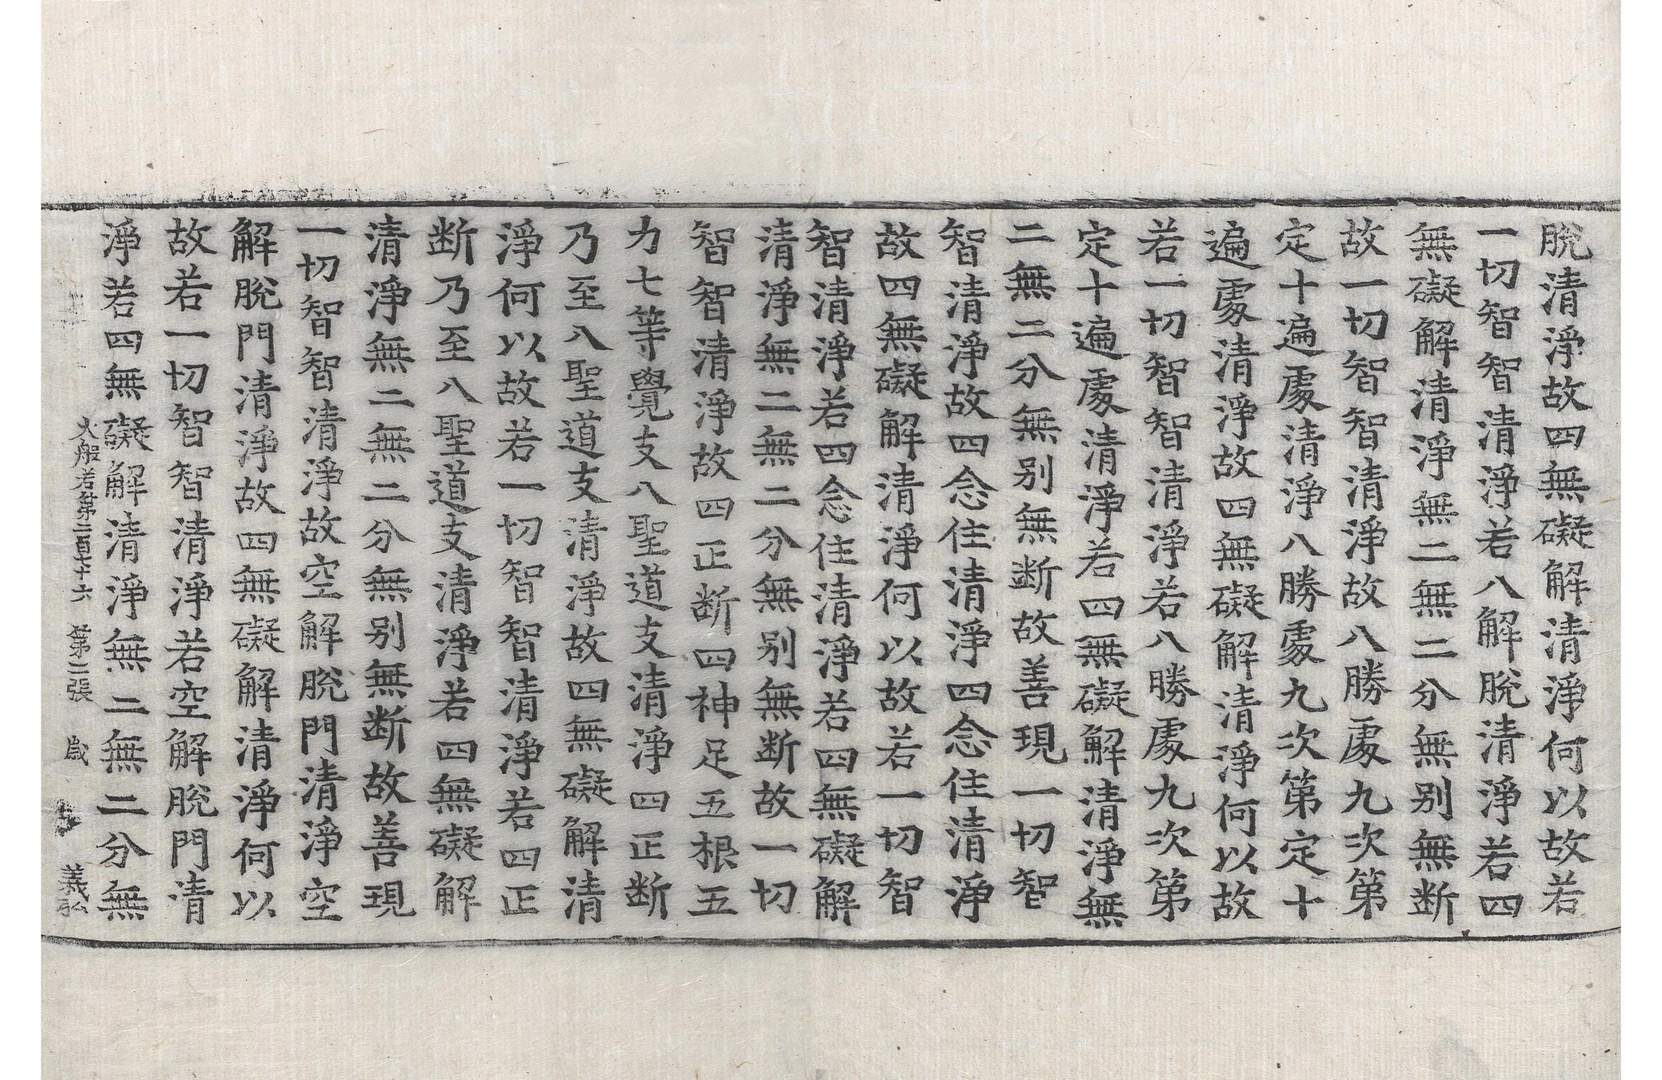 脫清淨故四無礙解清淨何以故若
一切智智清淨若八解脫清淨若四
無礙解清淨無二無二分無別無断
故一切智智清淨故八勝處九次第
定十遍處清淨八勝處九次第定十
遍處清淨故四無礙解清淨何以故
若一切智智清淨若八勝處九次第
定十遍處清淨若四無礙解清淨無
二無二分無别無断故善現一切智
智清淨故四念住清淨四念住清淨
故四無礙解清淨何以故若一切智
智清淨若四念住清淨若四無礙解
清淨無二無二分無别無断故一切
智智清淨故四正断四神足五根五
力七等覺支八聖道支清淨四正断
乃至八聖道支清淨故四無礙解清
淨何以故若一切智智清淨若四正
断乃至八聖道支清淨若四無礙解
清淨無二無二分無别無断故善現
一切智智清淨故空解脫門清淨空
解脫門清淨故四無礙解清淨何以
故若一切智智清淨若空解脫門清
淨若四無礙解清淨無二無二分無
大般若第二百十六 第二張 歲 義弘